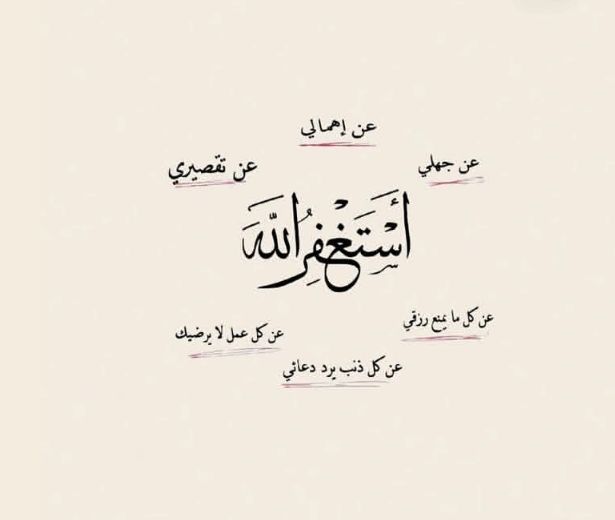 عن إهمالي
عن جهلي
عن تقصيري
أَسْتَغْفِرُ اللَّهَ
عن كل ما يمنع رزقي
عن كل عمل لا يرضيك
عن كل ذنب يرد دعائي